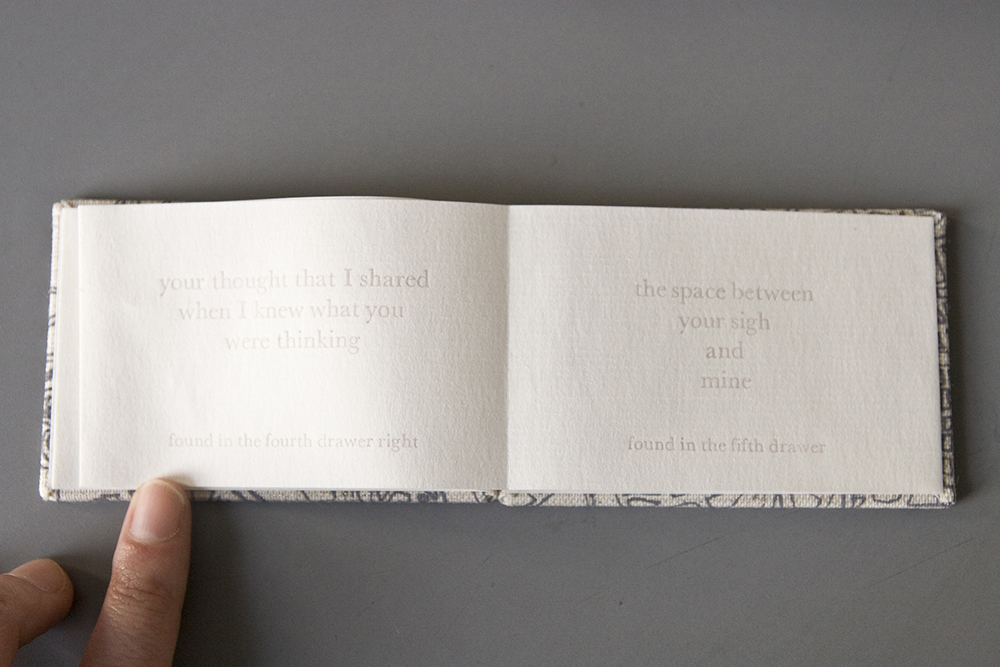 your thought that I shared
when I knew what you
were thinking
found in the fourth drawer right
the space between
your sigh
and
mine
found in the fifth drawer